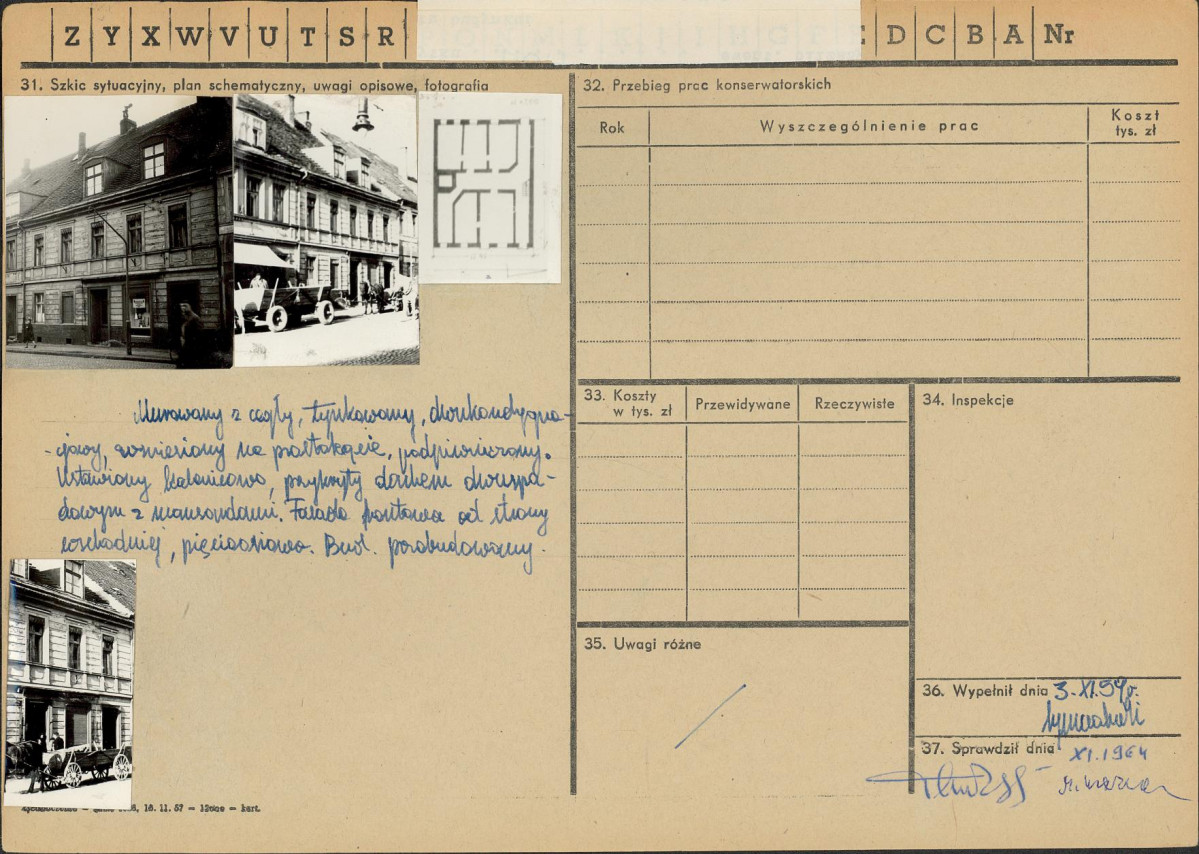 Z Y X W V U T S R E D C B A Nr
31. Szkic sytuacyjny, plan schematyczny, uwagi opisowe, fotografia
Murowany z cegły, tynkowany, dwukondygna-
-cjowy, wzniesiony na prostokącie, podpiwniczony.
Ustawiony kalenicowo, przykryty dachem dwuspa-
dowym z mansardami. Fasada frontowa od strony
wschodniej, pięcioosiowa. Bud. przebudowany.
18. 11. 57 — 12000 — kart.
32. Przebieg prac konserwatorskich
Rok Wyszczególnienie prac Koszt
tys. zł
33. Koszty
w tys. zł Przewidywane Rzeczywiste
34. Inspekcje
35. Uwagi różne
36. Wypełnił dnia 3.XI.59r.
37. Sprawdził dnia XI.1964